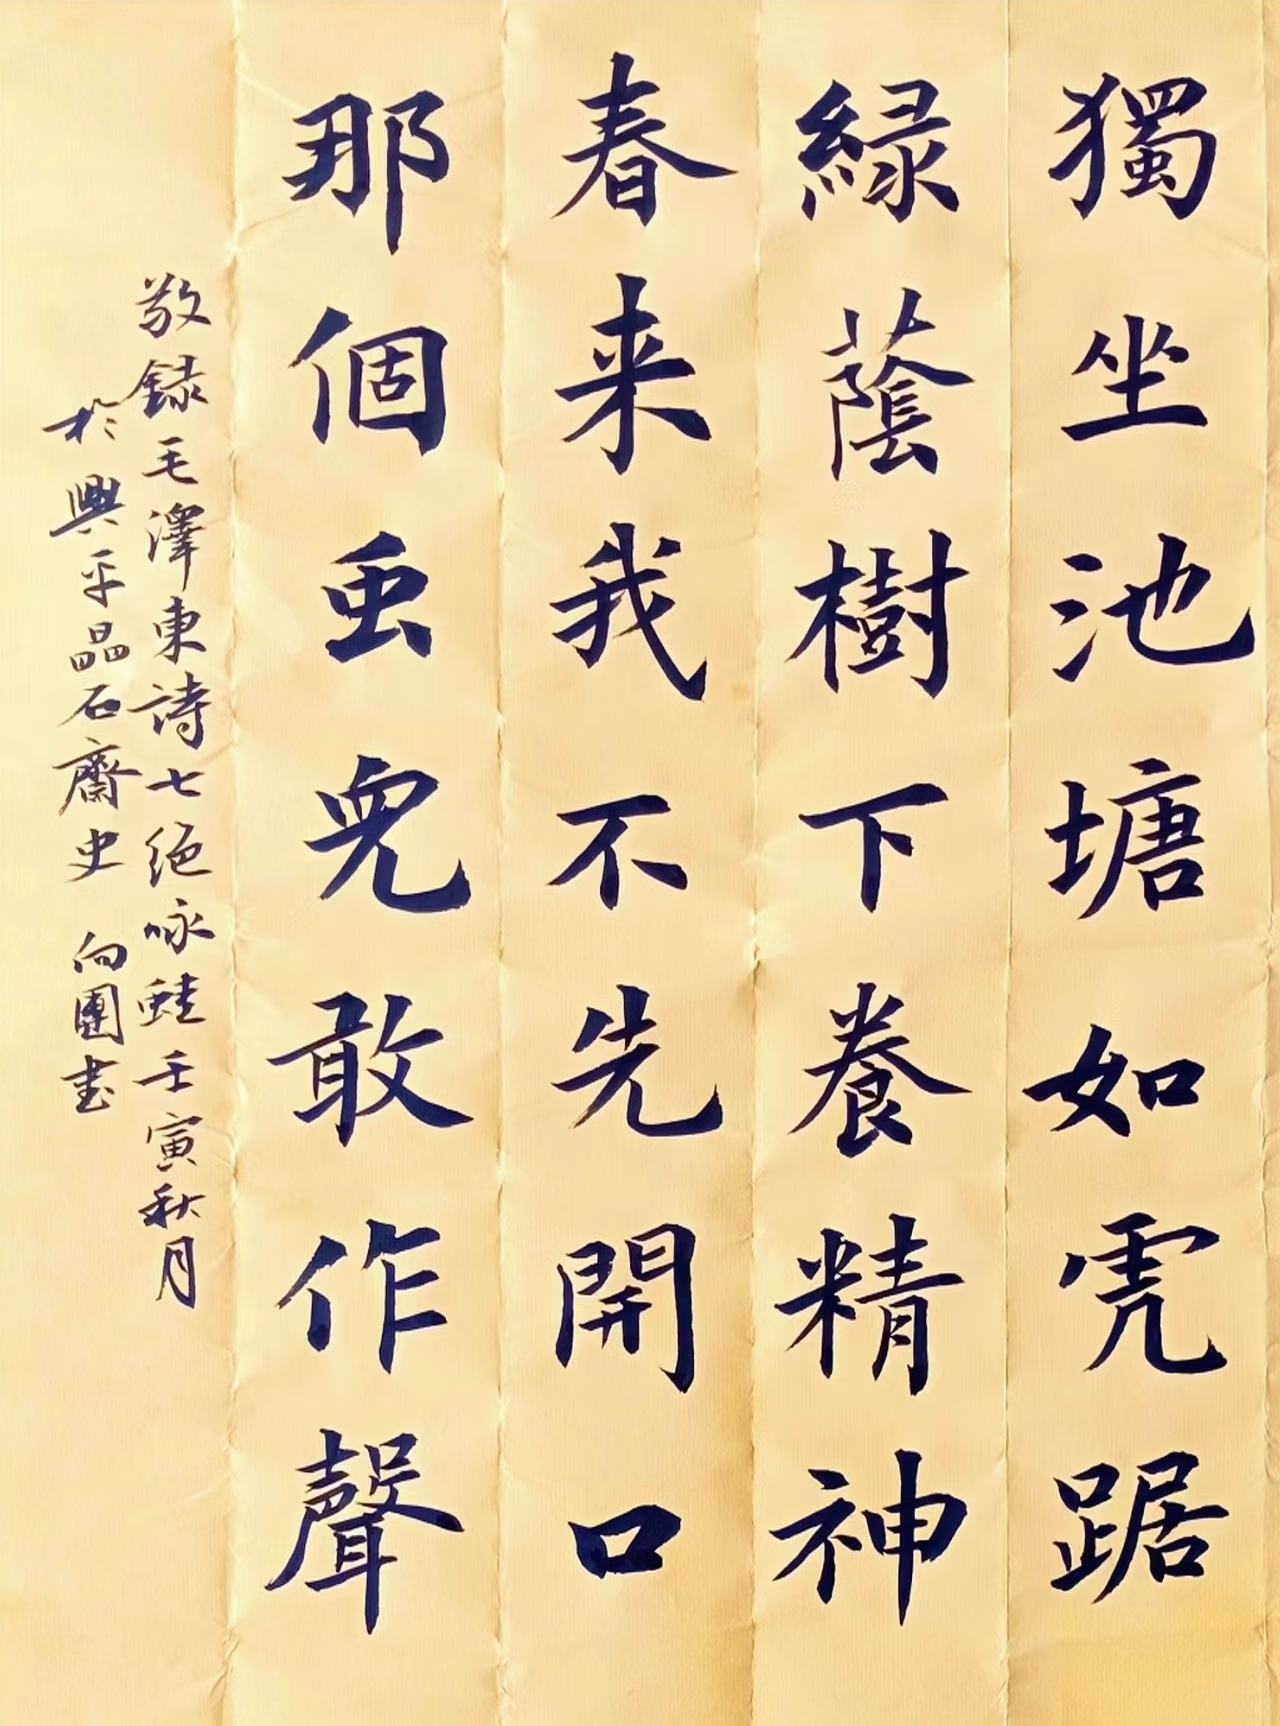 獨坐池塘如虎踞
緑蔭樹下養精神
春来我不先開口
那個虫兒敢作聲
敬録毛澤東詩七絕咏蛙壬寅秋月
於興平品石齋史向團書